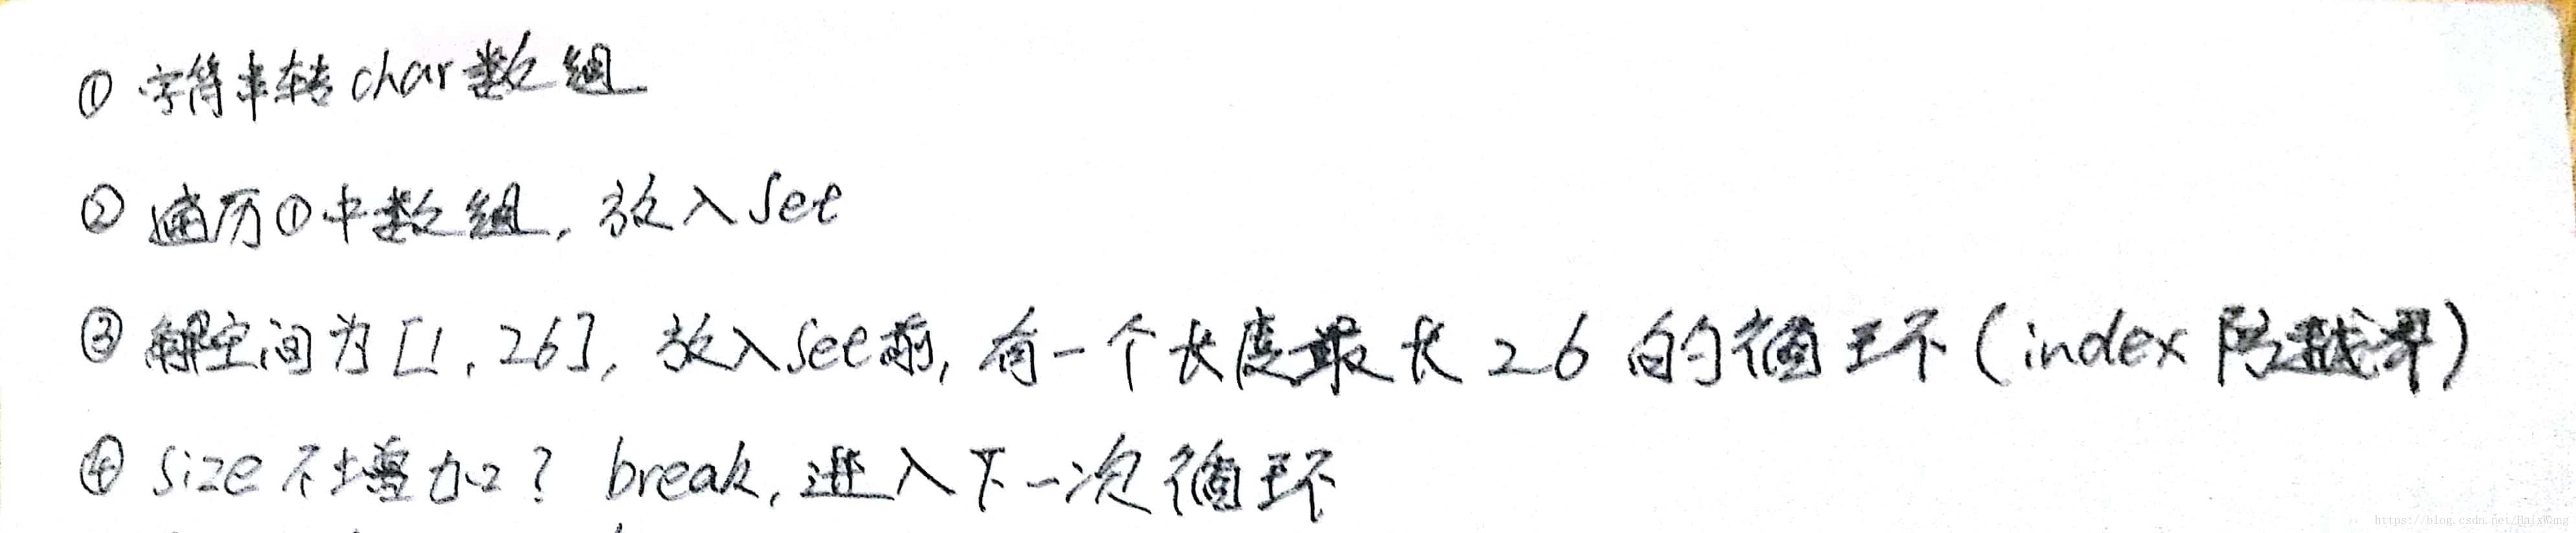 ① 字符串转char数组
② 遍历①中数组, 放入Set
③ 解空间为[1, 26], 放入Set前, 有一个长度最长26的循环(index防越界)
④ size不增加? break, 进入下一次循环
https://blog.csdn.net/HaixWang